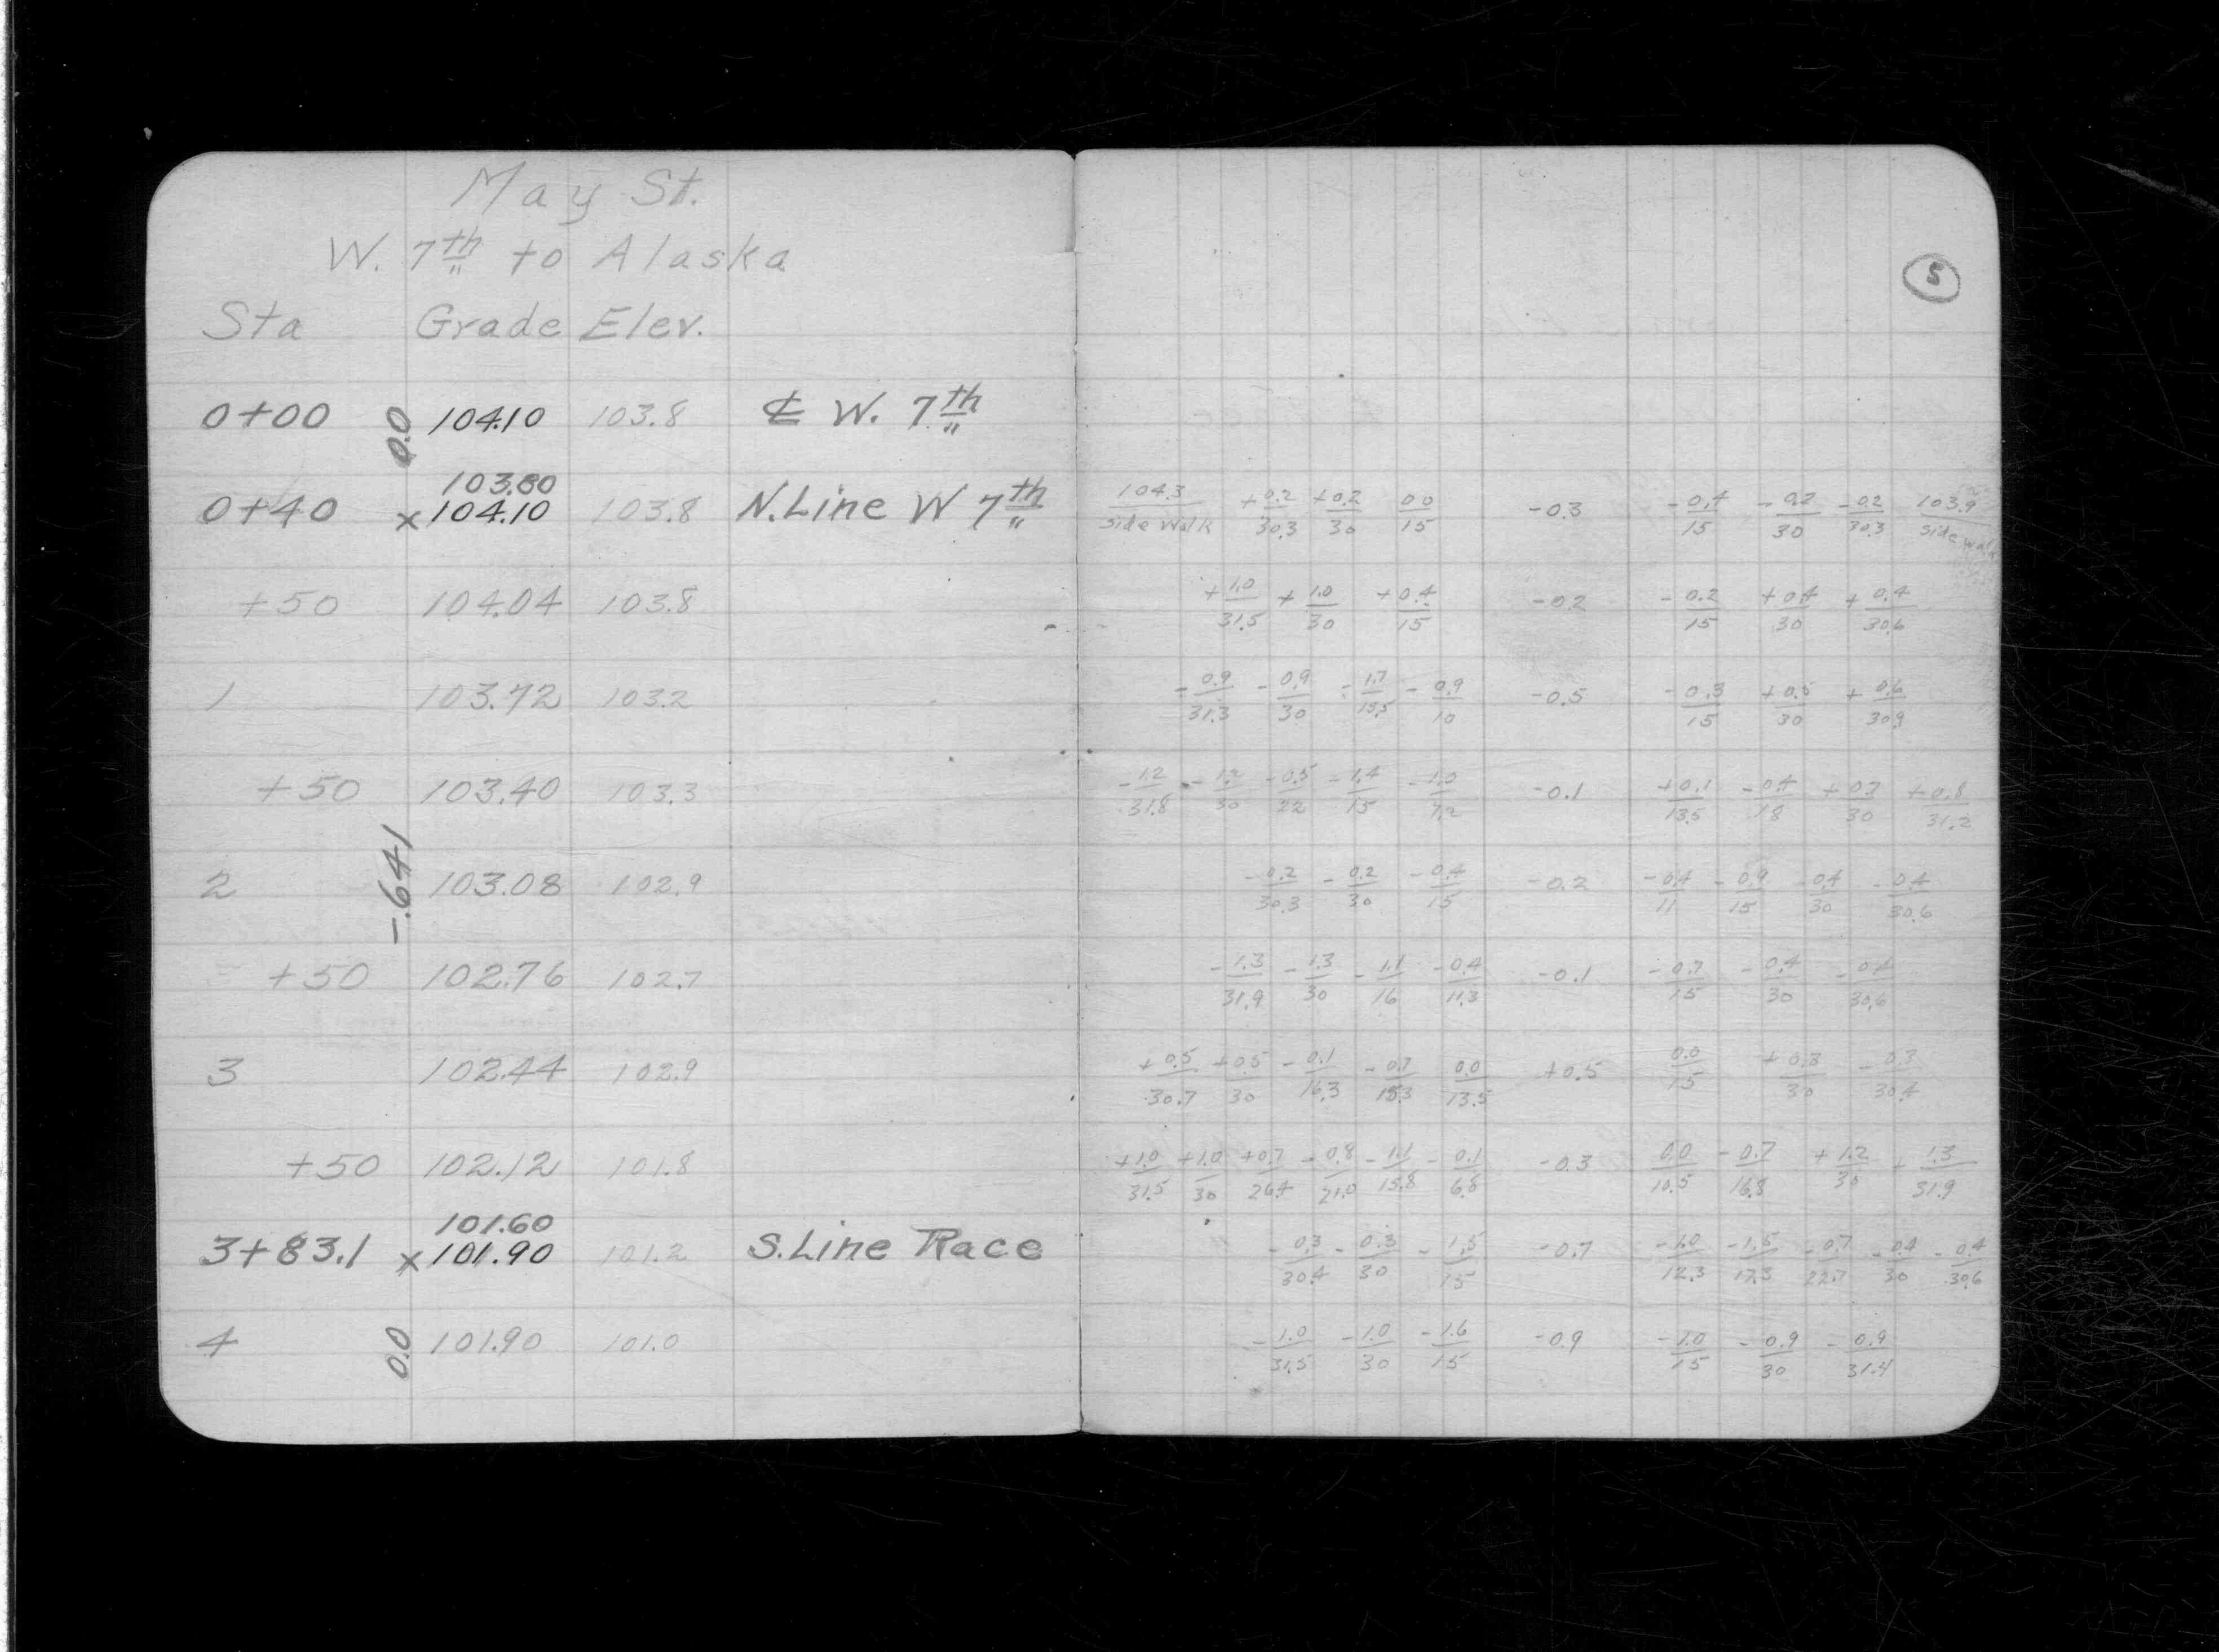 May St.
W. 7th to Alaska
5
Sta Grade Elev.
0+00 0.0 104.10 103.8 ℄ W. 7th
103.80
0+40 x 104.10 103.8 N.Line W 7th 104.3/side walk +0.2/30.3 +0.2/30 0.0/15 -0.3 -0.4/15 -0.2/30 -0.2/30.3 103.9/side walk
+50 104.04 103.8 +1.0/31.5 +1.0/30 +0.4/15 -0.2 -0.2/15 +0.4/30 +0.4/30.6
1 103.72 103.2 -0.9/31.3 -0.9/30 -1.7/15.5 -0.9/10 -0.5 -0.3/15 +0.5/30 +0.6/30.9
+50 103.40 103.3 -1.2/31.8 -1.2/30 -0.5/22 -1.4/15 -1.0/7.2 -0.1 +0.1/13.5 -0.4/18 +0.7/30 +0.8/31.2
2 -.641 103.08 102.9 -0.2/30.3 -0.2/30 -0.4/15 -0.2 -0.4/11 -0.9/15 -0.4/30 -0.4/30.6
+50 102.76 102.7 -1.3/31.9 -1.3/30 -1.1/16 -0.4/11.3 -0.1 -0.7/15 -0.4/30 -0.4/30.6
3 102.44 102.9 +0.5/30.7 +0.5/30 -0.1/16.3 -0.7/15.3 0.0/13.5 +0.5 0.0/15 +0.3/30 0.3/30.4
+50 102.12 101.8 +1.0/31.5 +1.0/30 +0.7/26.4 -0.8/21.0 -1.1/15.8 -0.1/6.8 -0.3 0.0/10.5 -0.7/16.8 +1.2/30 +1.3/31.9
101.60
3+83.1 x 101.90 101.2 S.Line Race -0.3/30.4 -0.3/30 -1.5/15 -0.7 -1.0/12.3 -1.5/17.3 -0.7/22.7 -0.4/30 -0.4/30.6
4 0.0 101.90 101.0 -1.0/31.5 -1.0/30 -1.6/15 -0.9 -1.0/15 -0.9/30 -0.9/31.4